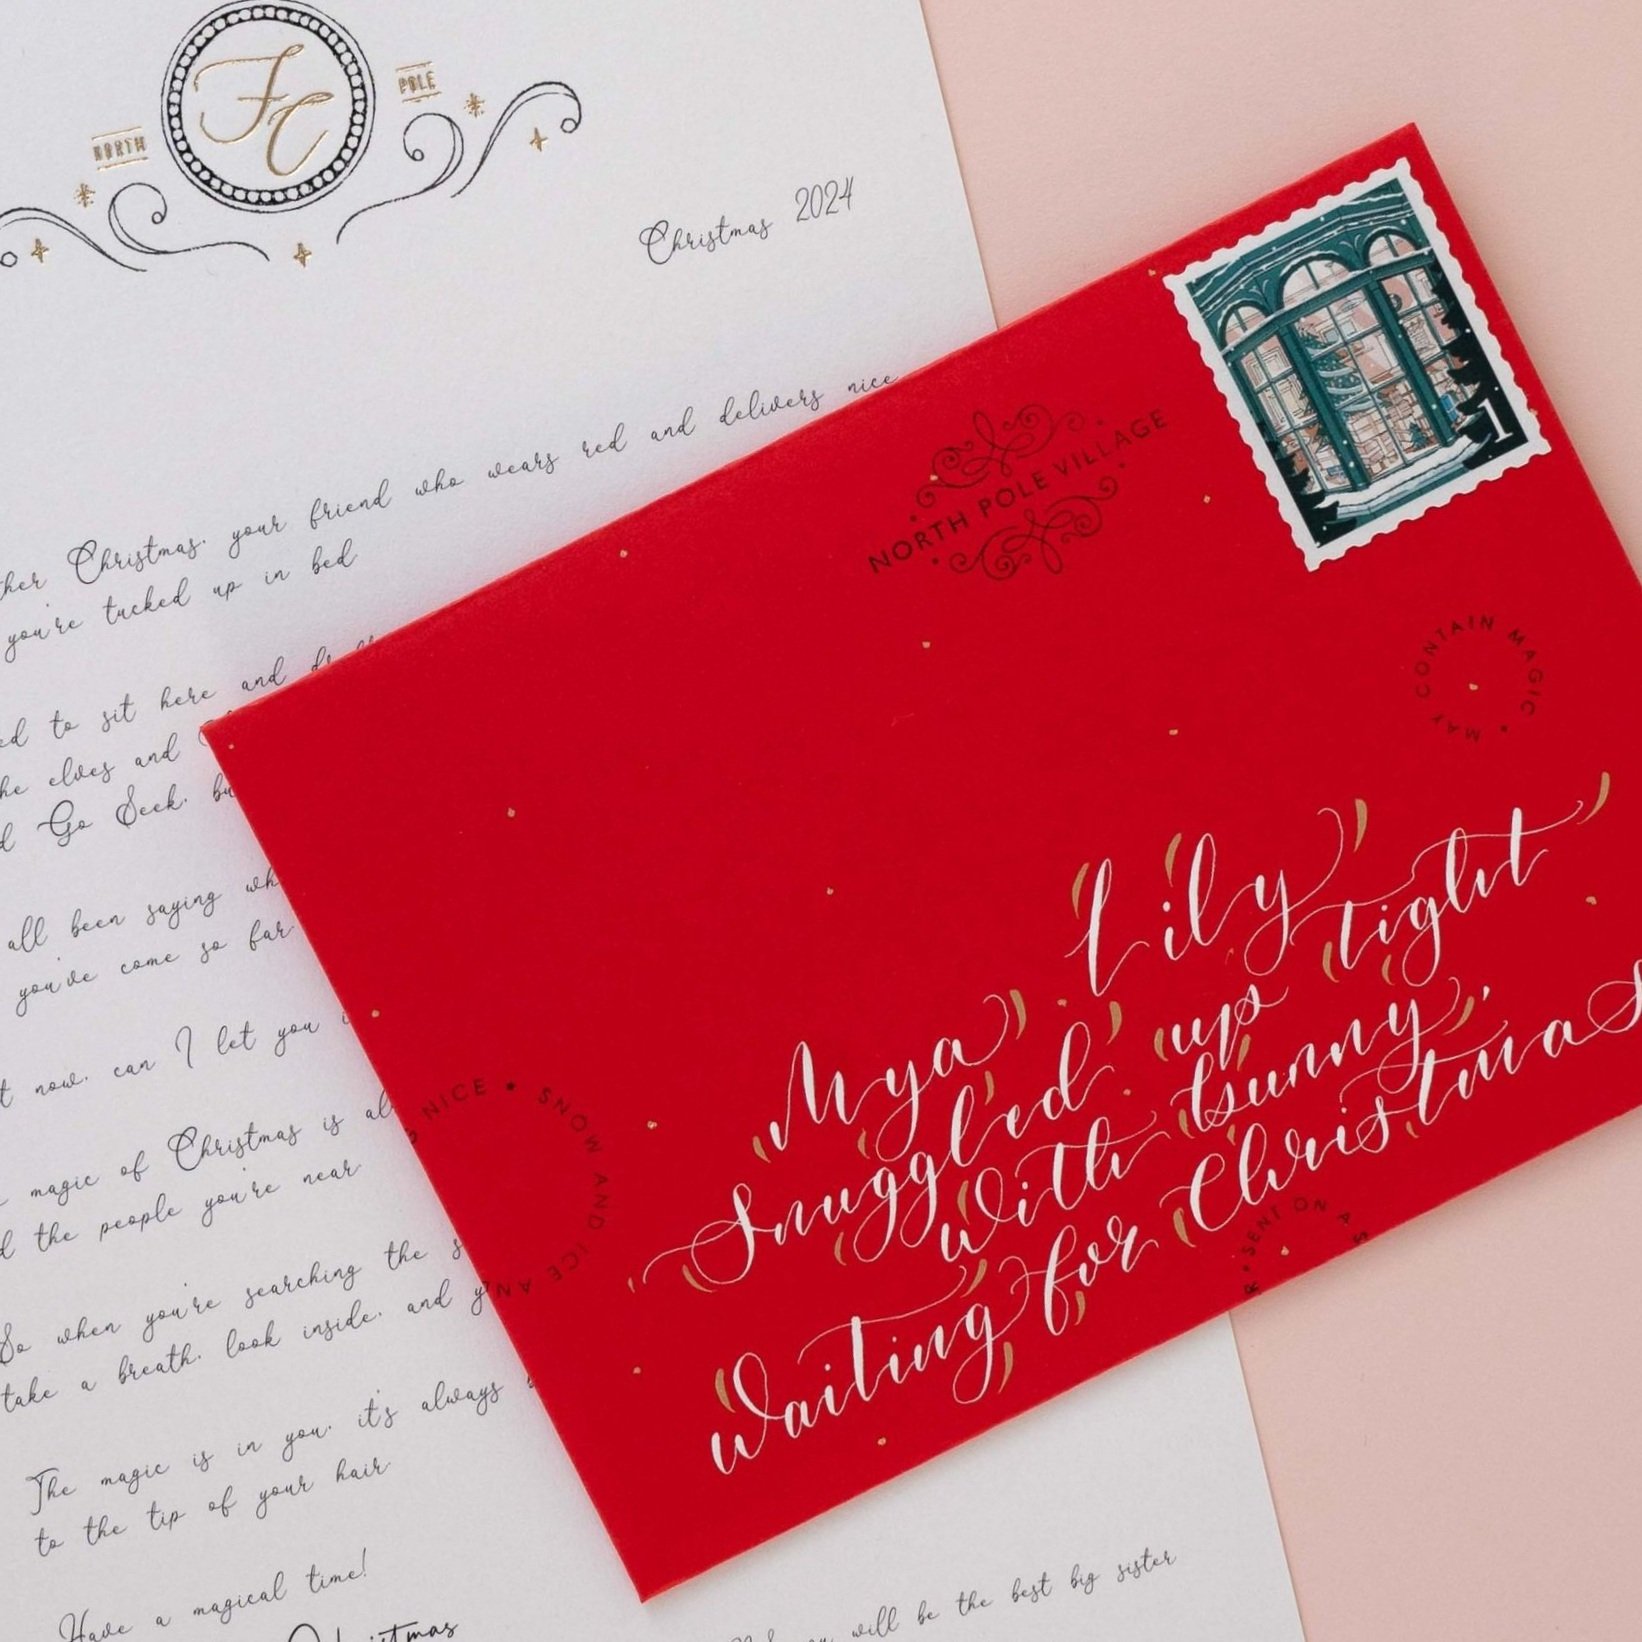 FC
NORTH POLE
Christmas 2024
Christmas, your friend who wears red and delivers nice
you're tucked up in bed
to sit here and
elves and
Go Seek,
all been saying
you've come so far.
now, can I let you
magic of Christmas is
the people you're near
So when you're searching the
take a breath, look inside, and
The magic is in you, it's always
to the tip of your hair.
Have a magical time!
Christmas
will be the best big sister
NORTH POLE VILLAGE
1
MAY CONTAIN MAGIC
Mya Lily
Snuggled up tight
with bunny,
waiting for Christmas
NICE • SNOW AND ICE AN
SENT ON A